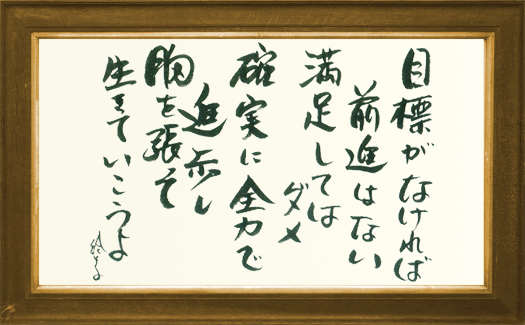 目標がなければ
前進はない
満足しては
ダメ
確実に全力で
進歩し
胸を張って
生きていこうよ